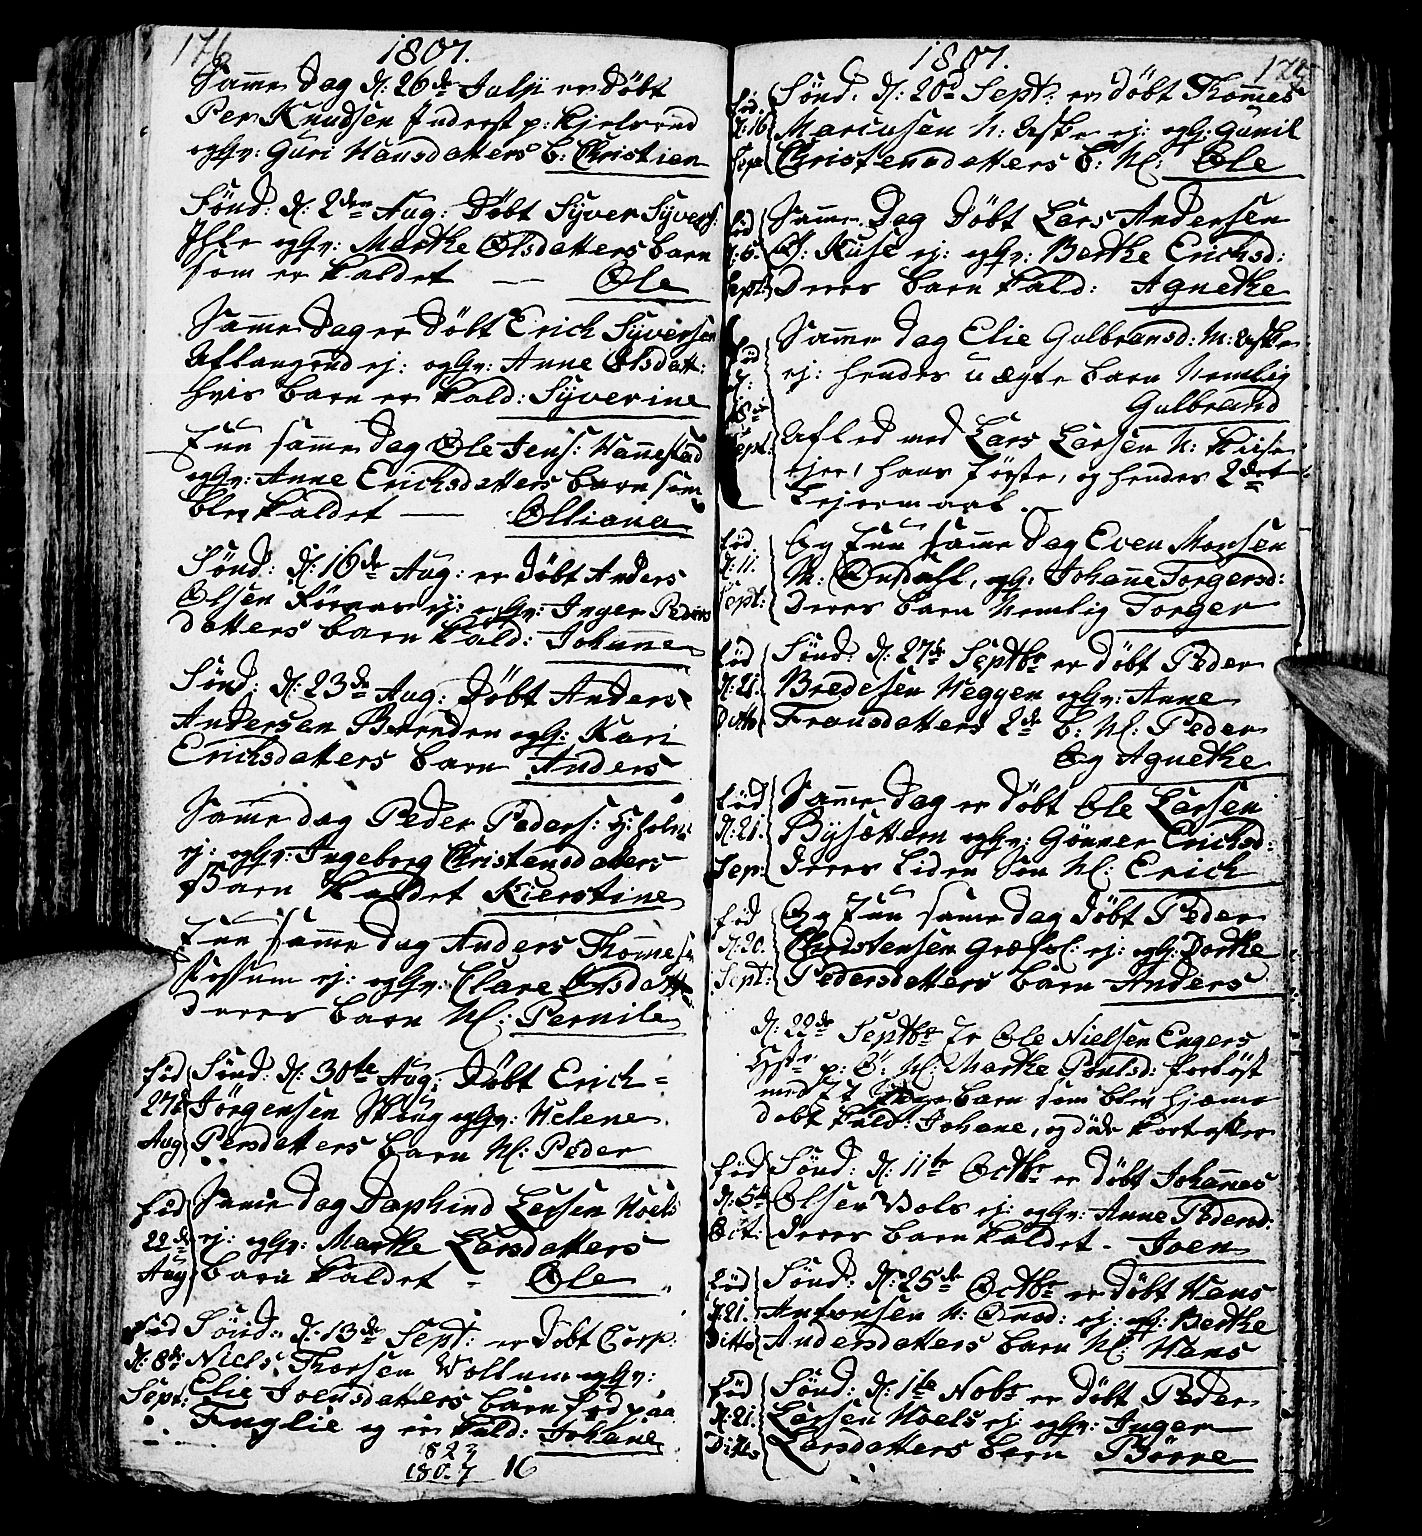 176
1807.
Samme Dag d: 26de Julij er Døbt
Per Knudsen Inderst p: Kjelsrud
og hv: Guri Hansdatters b: Christien
Sønd: d: 2den Aug: Døbt Syver Syvers:
Ihle og hv: Marthe Olsdatters barn
som er kaldet — Ole
Samme Dag er Døbt Erich Syversen
ej: og hv: Anne Olsdatt:
hvis barn er kald: Syverine
End samme Dag Ole Jens: Hannestad
og hv: Anne Erichsdatters barn som
blev kaldet — Olliana
Sønd: d: 16de Aug: er Døbt Anders
Olsen ej: og hv: Inger Peders
datters barn kald: Johanne
Sønd: d: 23de Aug: Døbt Anders
Andersen Brenden og hv: Kari
Erichsdatters barn Anders
Samme dag Peder Peders:
ej: og hv: Ingeborg Christensdatters
Barn kaldet Kierstine
End samme dag Anders Thommesen
Fossum ej: og hv: Clare Olsdatt
deres barn N: Pernile
fød 27de Aug
Sønd: d: 30te Aug: Døbt Erich
Jørgensen Skoug og hv: Helene
Persdatters barn N: Peder
fød 22de Aug
Samme dag Daphind Larsen Hoels
ej: og hv: Marthe Larsdatters
barn kaldet - Ole
fød d: 8de Sept:
Sønd: d: 13de Sept: er Døbt Corp:
Niels Thorsen Vollum og hv:
Elie Joensdatters barn fød paa
Fuglie og er kald: Johane
823
1807 16
1807.
fød d: 16 Sept
Sønd: d: 20de Sept: er døbt Thommes
Marcusen N: Aske ej: og hv: Gunil
Christensdatters b: N: Ole
fød d: 5: Sept:
Samme Dag Døbt Lars Andersen
Ø: Kuse ej: og hv: Berthe Erichsd:
Deres barn kald: Agnethe
fød d: 18de Sept:
Samme dag Elie Gulbransd: N: Aske
ej: hendes uægte barn Nemlig
Gulbrand
Afled med Lars Larsen N: Kuse
ejer, hans første, og hendes 2det
Lejermaal.
fød d: 11. Sept:
Og End samme dag Even Monsen
N: Onsdall, og hv: Johanne Torgersd:
Deres barn Nemlig Torger
fød d: 21. Ditto
Sønd: d: 27de Septbr er døbt Peder
Bredesen Heggen og hv: Anne
Fransdatters 2de b: N: Peder
Og Agnethe
fød d: 21. Sep:
Samme dag er døbt Ole Larsen
Bysætteren og hv: Gønner Erichsd:
deres liden Søn N: Erich
fød d: 20. Sept:
Og End samme dag døbt Peder
Christensen ej: og hv: Dorthe
Pedersdatters barn Anders
d: 22de Septbr Er Ole Nielsen Engers
p: Ø: N: Marthe Poulsd: forløst
med Et barn som blev hjeme
døbt kald: Johane, og døde kort efter
fød d: 5te Oct:
Sønd: d: 11te Octbr er døbt Johannes
Olsen Vols ej: og hv: Anne Pedersd:
deres barn kaldet - Joen
fød d: 21. Ditto
Sønd: d: 25de Octbr er døbt Hans
Antonsen N: Onsd: ej: og hv: Berthe
Andersdatters barn N: Hans
fød d: 21. Ditto
Sønd: d: 1te Nobr er døbt Peder
Larsen Hoels ej: og hv: Inger
Larsdatters barn Børre